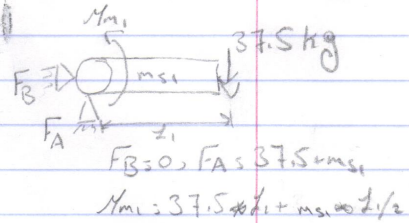 Mm₁
37.5 kg
ms₁
F_B
F_A
L₁
F_B=0, F_A=37.5+ms₁
Mm₁=37.5*L₁+ms₁*L₁/2